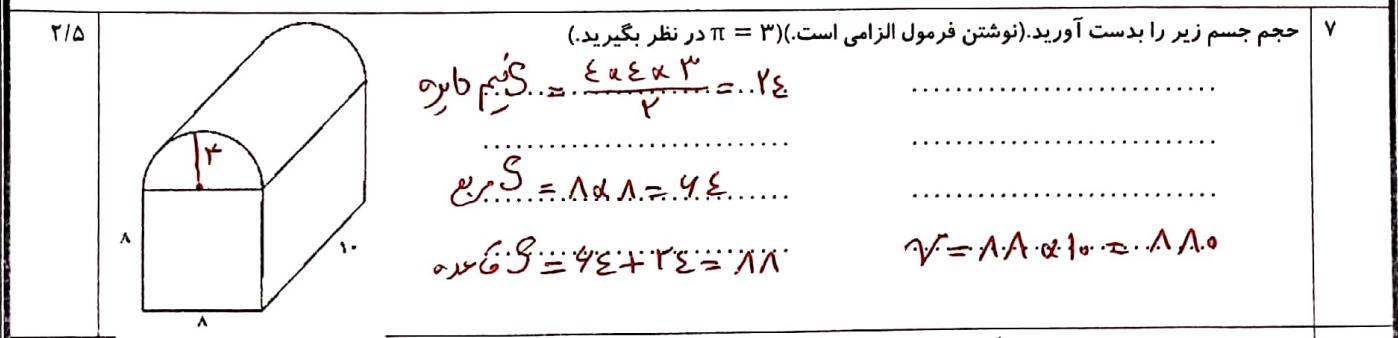 ۷ حجم جسم زیر را بدست آورید.(نوشتن فرمول الزامی است.)(π = ۳ در نظر بگیرید.) ۲/۵
S نیم دایره = ٤×٤×۳ / ۲ = ۲٤
۴
S مربع = ۸×۸ = ۶٤
۸
۱۰
S قاعده = ۶٤+۲٤ = ۸۸
V = ۸۸×۱۰ = ۸۸۰
۸